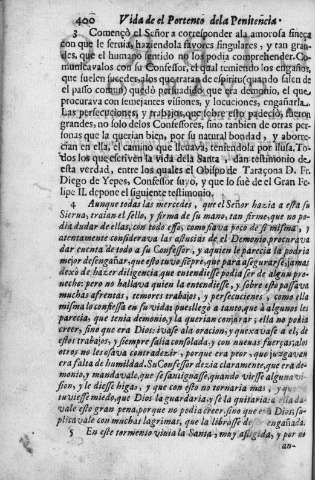 400 Vida de el Portento dela Penitencia.
3 Començò el Señor a corresponder ala amorosa fineça
con que le seruia, haziendola favores singulares, y tan gran-
des, que el humano sentido no los podia comprehender. Co-
municavalos con su Confessor, el qual temiendo los engaños,
que suelen suceder a los que tratan de espiritu (quando salen de
el passo comun) quedò persuadido que era demonio, el que,
procurava con semejantes visiones, y locuciones, engañarla.
Las persecuciones, y trabajos, que sobre esto padeciò, fueron
grandes, no solo delos Confessores, sino tanbien de otras per-
sonas que la querian bien, por su natural bondad, y aborre-
cian en ella, el camino que llevava, teniendola por ilusa. To-
dos los que escriven la vida dela Santa, dan testimonio de
esta verdad, entre los quales el Obispo de Taraçona D. Fr.
Diego de Yepes, Confessor suyo, y que lo fuè de el Gran Fe-
lipe II. depone el siguiente testimonio,
4 Aunque todas las mercedes, que el Señor hazia a esta su
Sierua, traian el sello, y firma de su mano, tan firme, que no po-
dia dudar de ellas, con todo esso, como fiava poco de sì misma, y
atentamente considerava las astucias de el Demonio, procurava
dar cuenta de todo a su Confessor, y a quien le parecia la podria
mejor desengañar, que esto tuvo siẽpre, que para asegurarse, jamas
dexò de hazer diligencia que entendiesse podia ser de algun pro-
uecho: pero no hallava quien la entendiesse, y sobre esto passava
muchas afrentas, temores trabajos, y persecuciones, como ella
misma lo confiessa en su vida; pues llegò a tanto, que à algunos les
parecia, que tenia demonio, y la querian conjurar; ella no podia
creer, sino que era Dios: ivase ala oracion, y quexavase a el, de
estos trabajos, y siempre salia consolada, y con nuevas fuerças; a los
otros no les osava contradezir, porque era peor, que juzgavan
era falta de humildad. Su Confessor dezia claramente, que era de-
monio, y mandavale, que se santiguasse, quando viesse alguna vi-
sion, y le diesse higas, y que con esto no tornaria mas, y que no
tuviesse miedo, que Dios la guardaria, y se la quitaria: a esta da-
vale esto gran pena, porque no podia creer, sino que era Dios, su-
plicavale con muchas lagrimas, que la librasse de engañada.
5 En este tormento viuia la Santa, muy afligida, y por no
au-